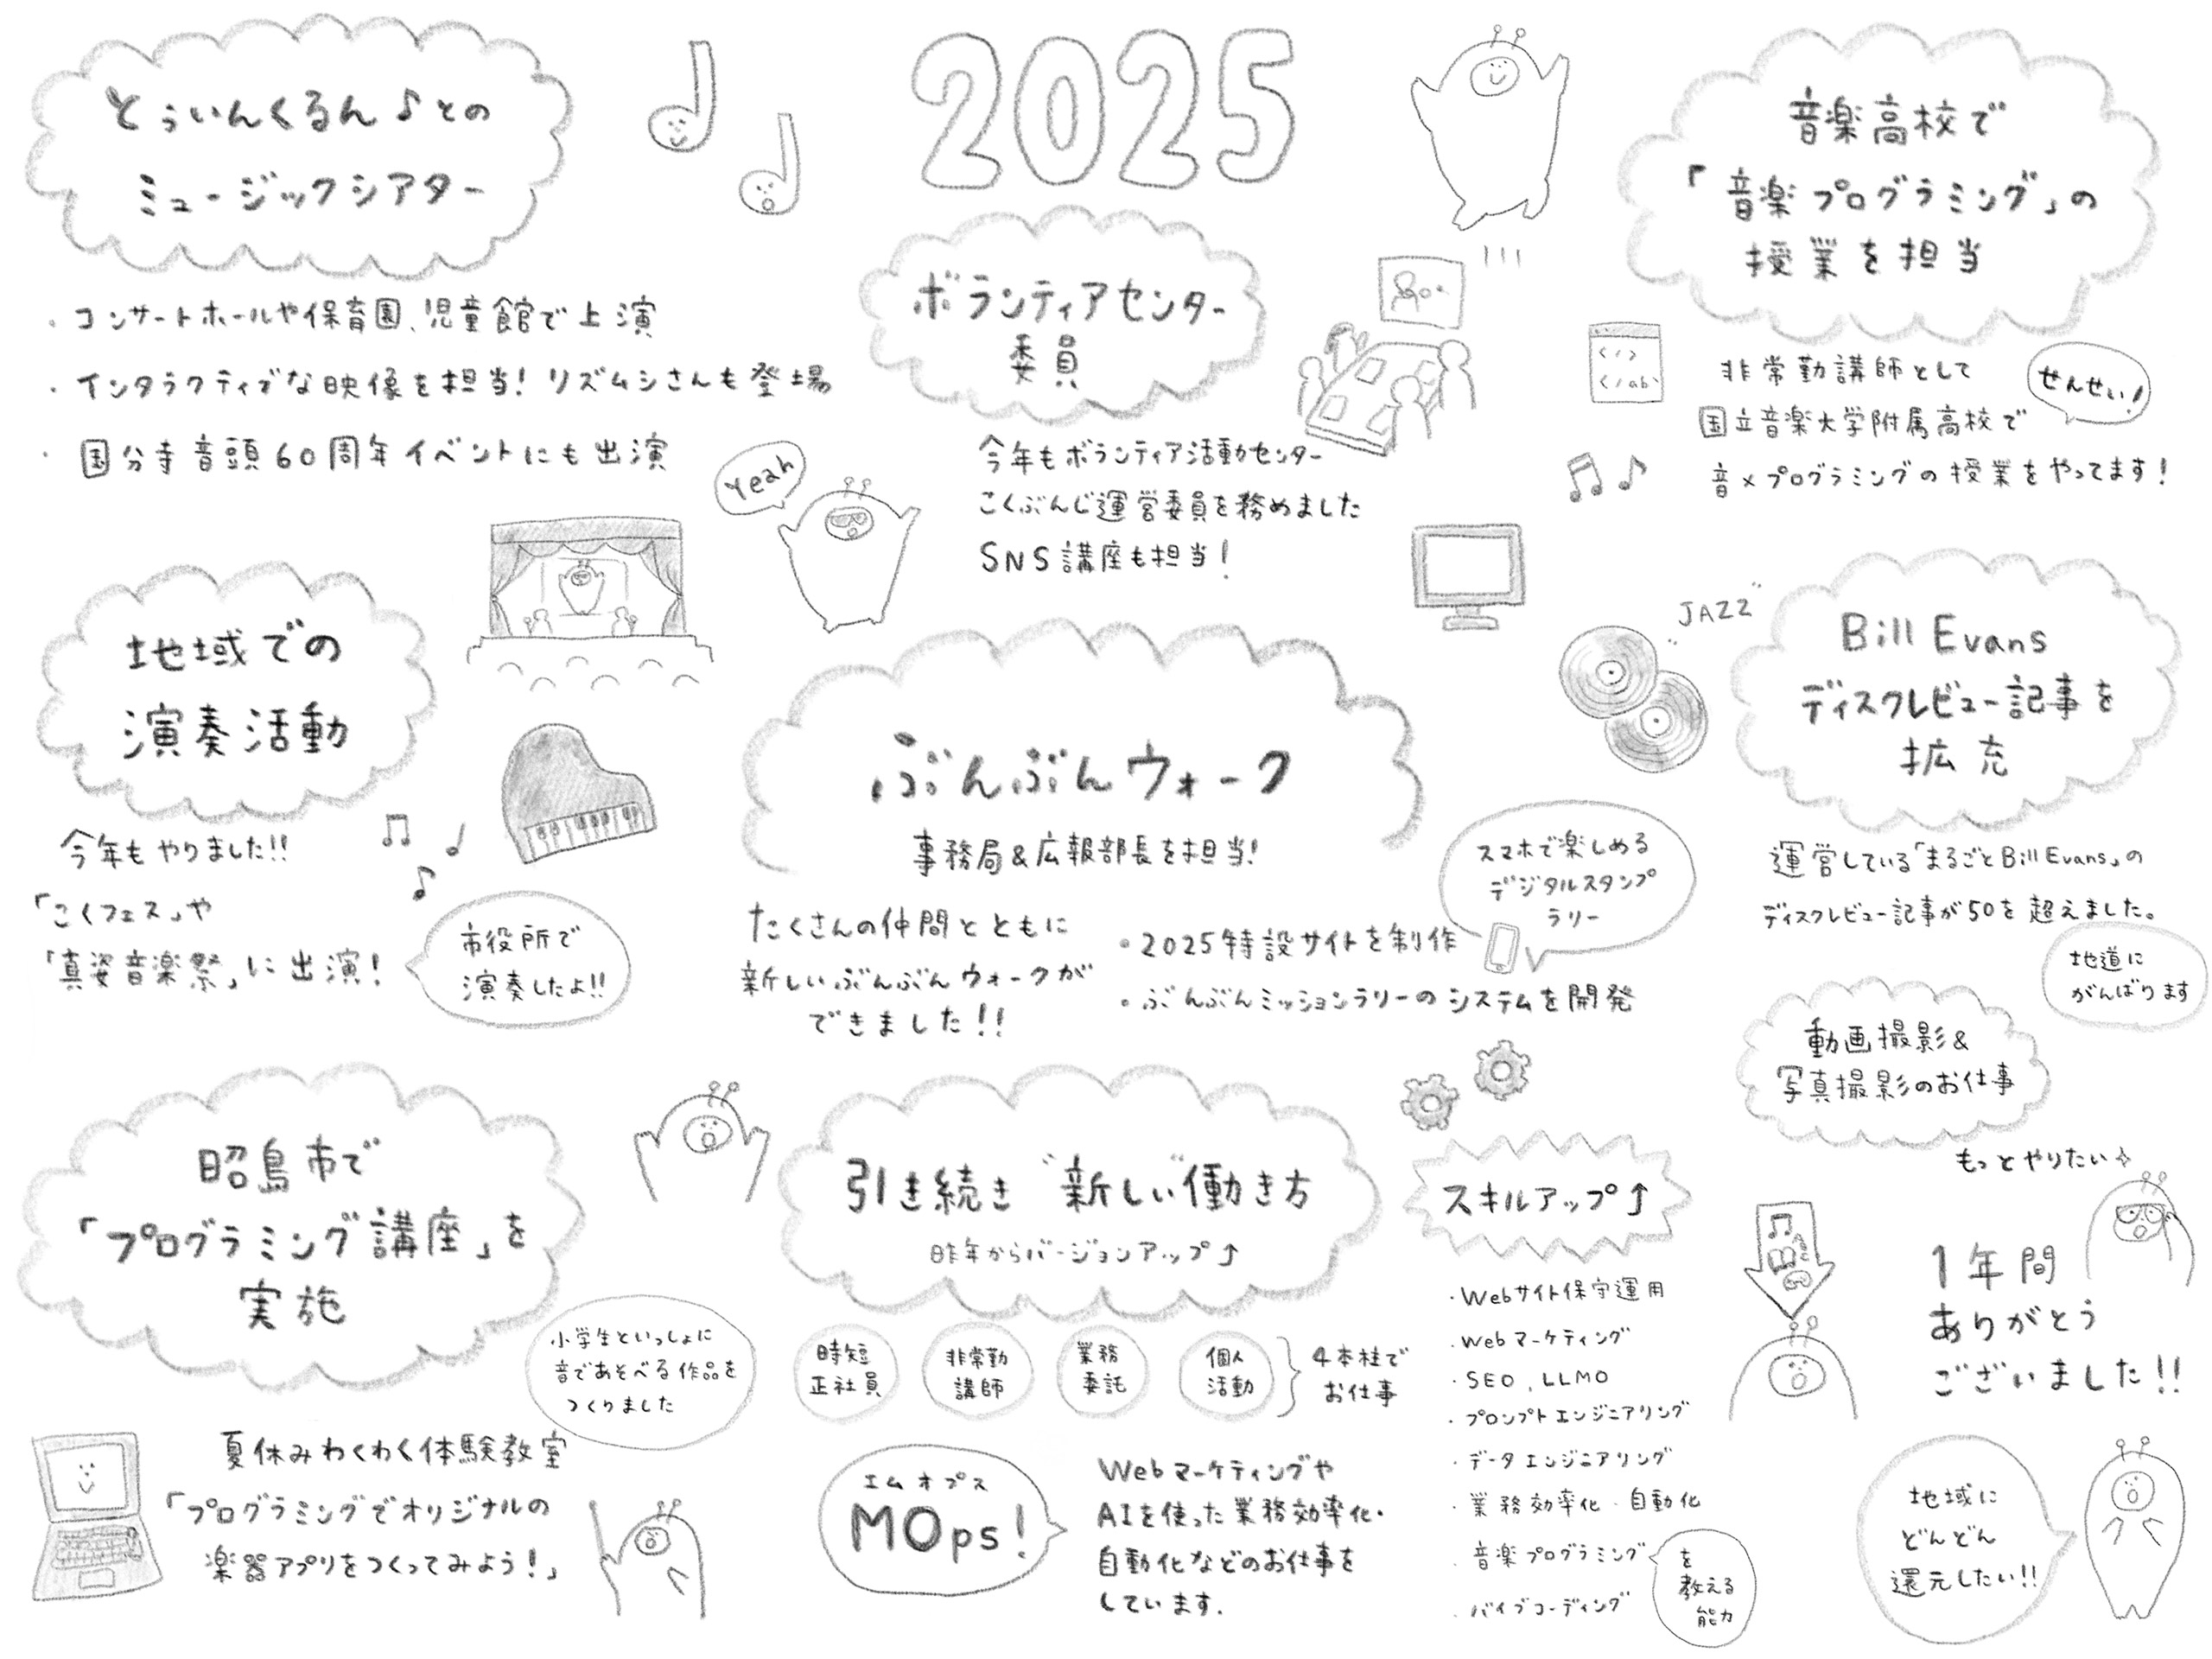 2025
とぅいんくるん♪との
ミュージックシアター
・コンサートホールや保育園、児童館で上演
・インタラクティブな映像を担当！リズムシさんも登場
・国分寺音頭60周年イベントにも出演
Yeah
ボランティアセンター
委員
今年もボランティア活動センター
こくぶんじ運営委員を務めました
SNS講座も担当！
音楽高校で
「音楽プログラミング」の
授業を担当
</>
</ab>
せんせい！
非常勤講師として
国立音楽大学附属高校で
音×プログラミングの授業をやってます！
地域での
演奏活動
今年もやりました!!
「こくフェス」や
「真姿音楽祭」に出演！
市役所で
演奏したよ!!
ぶんぶんウォーク
事務局&広報部長を担当!
たくさんの仲間とともに
新しいぶんぶんウォークが
できました!!
・2025特設サイトを制作
・ぶんぶんミッションラリーのシステムを開発
スマホで楽しめる
デジタルスタンプ
ラリー
JAZZ
Bill Evans
ディスクレビュー記事を
拡充
運営している「まるごとBill Evans」の
ディスクレビュー記事が50を超えました。
地道に
がんばります
動画撮影&
写真撮影のお仕事
もっとやりたい
昭島市で
「プログラミング講座」を
実施
小学生といっしょに
音であそべる作品を
つくりました
夏休みわくわく体験教室
「プログラミングでオリジナルの
楽器アプリをつくってみよう！」
引き続き"新しい"働き方
昨年からバージョンアップ↑
時短
正社員
非常勤
講師
業務
委託
個人
活動
4本柱で
お仕事
エムオプス
MOps！
Webマーケティングや
AIを使った業務効率化・
自動化などのお仕事を
しています.
スキルアップ↑
・Webサイト保守運用
・Webマーケティング
・SEO、LLMO
・プロンプトエンジニアリング
・データエンジニアリング
・業務効率化・自動化
・音楽プログラミング
を
教える
能力
・バイブコーディング
1年間
ありがとう
ございました!!
地域に
どんどん
還元したい!!